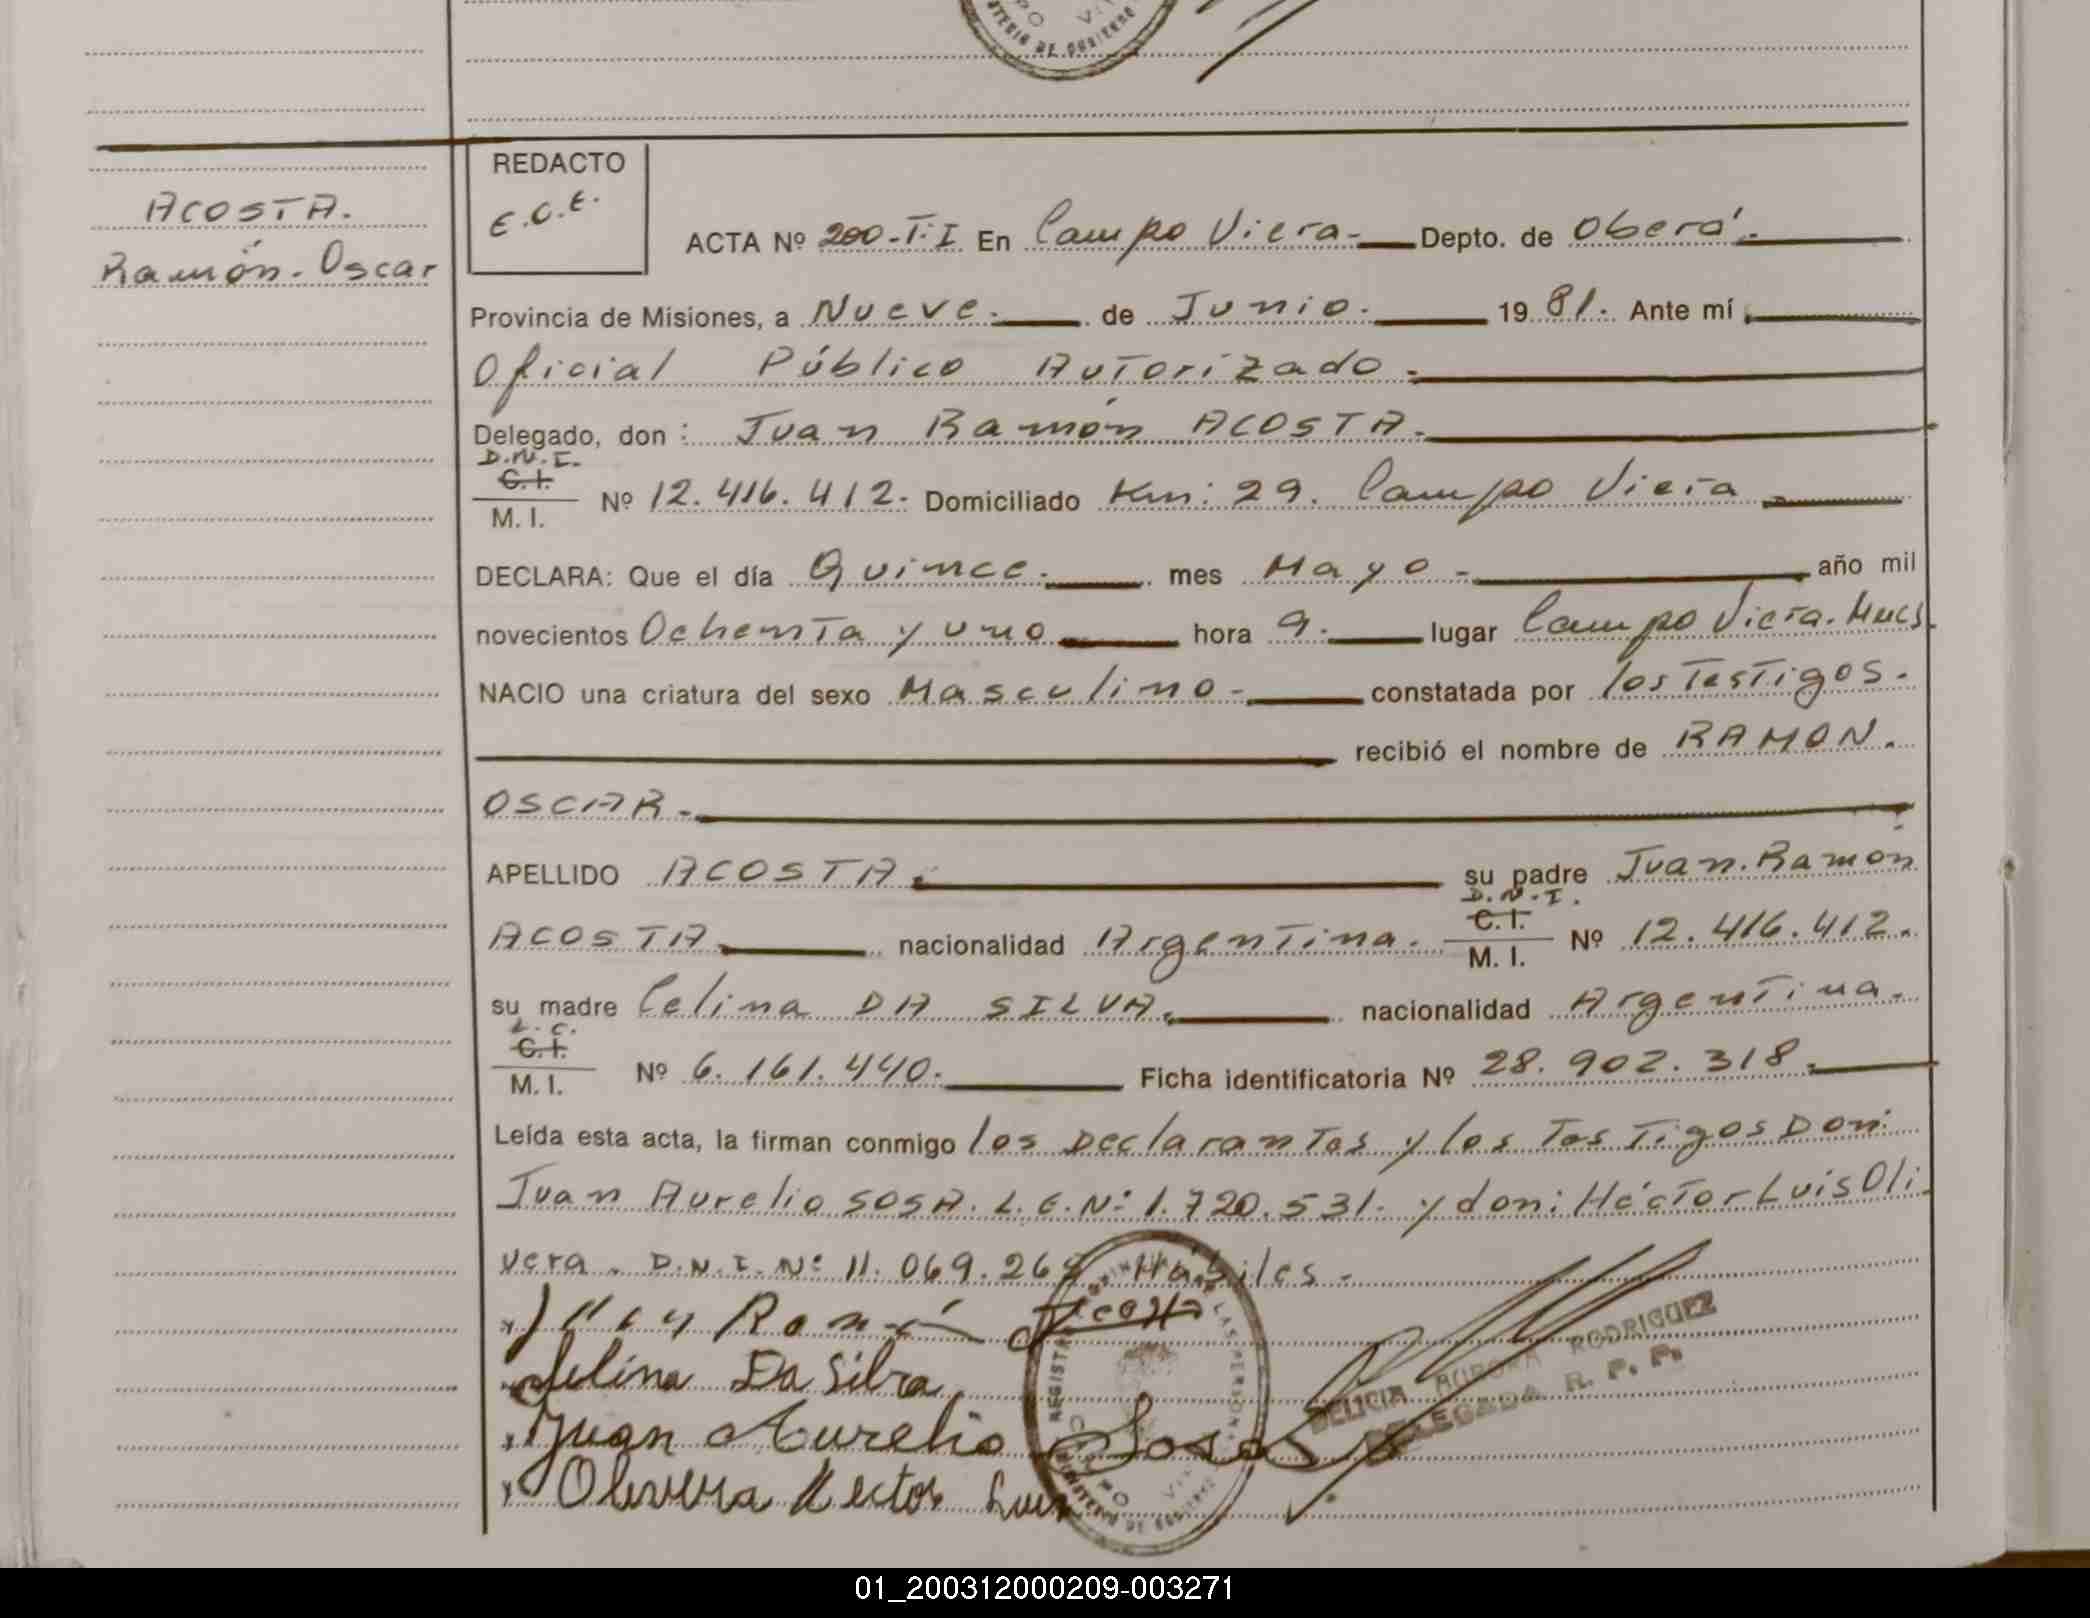 ACOSTA.
Ramón. Oscar
REDACTO
E.C.E.
ACTA Nº 200-T.I En Campo Viera- Depto. de Oberá.
Provincia de Misiones, a Nueve. de Junio. 1981. Ante mí,
Oficial Público Autorizado.
Delegado, don: Juan Ramón ACOSTA.
D.N.I.
C.I.
M. I. Nº 12.416.412. Domiciliado Km: 29. Campo Viera
DECLARA: Que el día Quince. mes Mayo - año mil
novecientos Ochenta y uno hora 9. lugar Campo Viera.
NACIO una criatura del sexo Masculino- constatada por los Testigos.
recibió el nombre de RAMON.
OSCAR.
APELLIDO ACOSTA. su padre Juan. Ramón
D.N.I.
ACOSTA nacionalidad Argentina. C.I. M. I. Nº 12.416.412.
su madre Celina DA SILVA. nacionalidad Argentina.
L.C.
C.I.
M. I. Nº 6.161.440. Ficha identificatoria Nº 28.902.318.
Leída esta acta, la firman conmigo los Declarantes y los Testigos Don:
Juan Aurelio SOSA. L.E.Nº 1.720.531. y don: Héctor Luis Oli
vera. D.N.I.Nº 11.069.26 Hábiles.
Juan Ramón Acosta
Selina Da Silva
Juan Aurelio Sosa
Oliveira Hector Luis
DELICIA AURORA RODRIGUEZ
DELEGADA R. P. P.
01_200312000209-003271